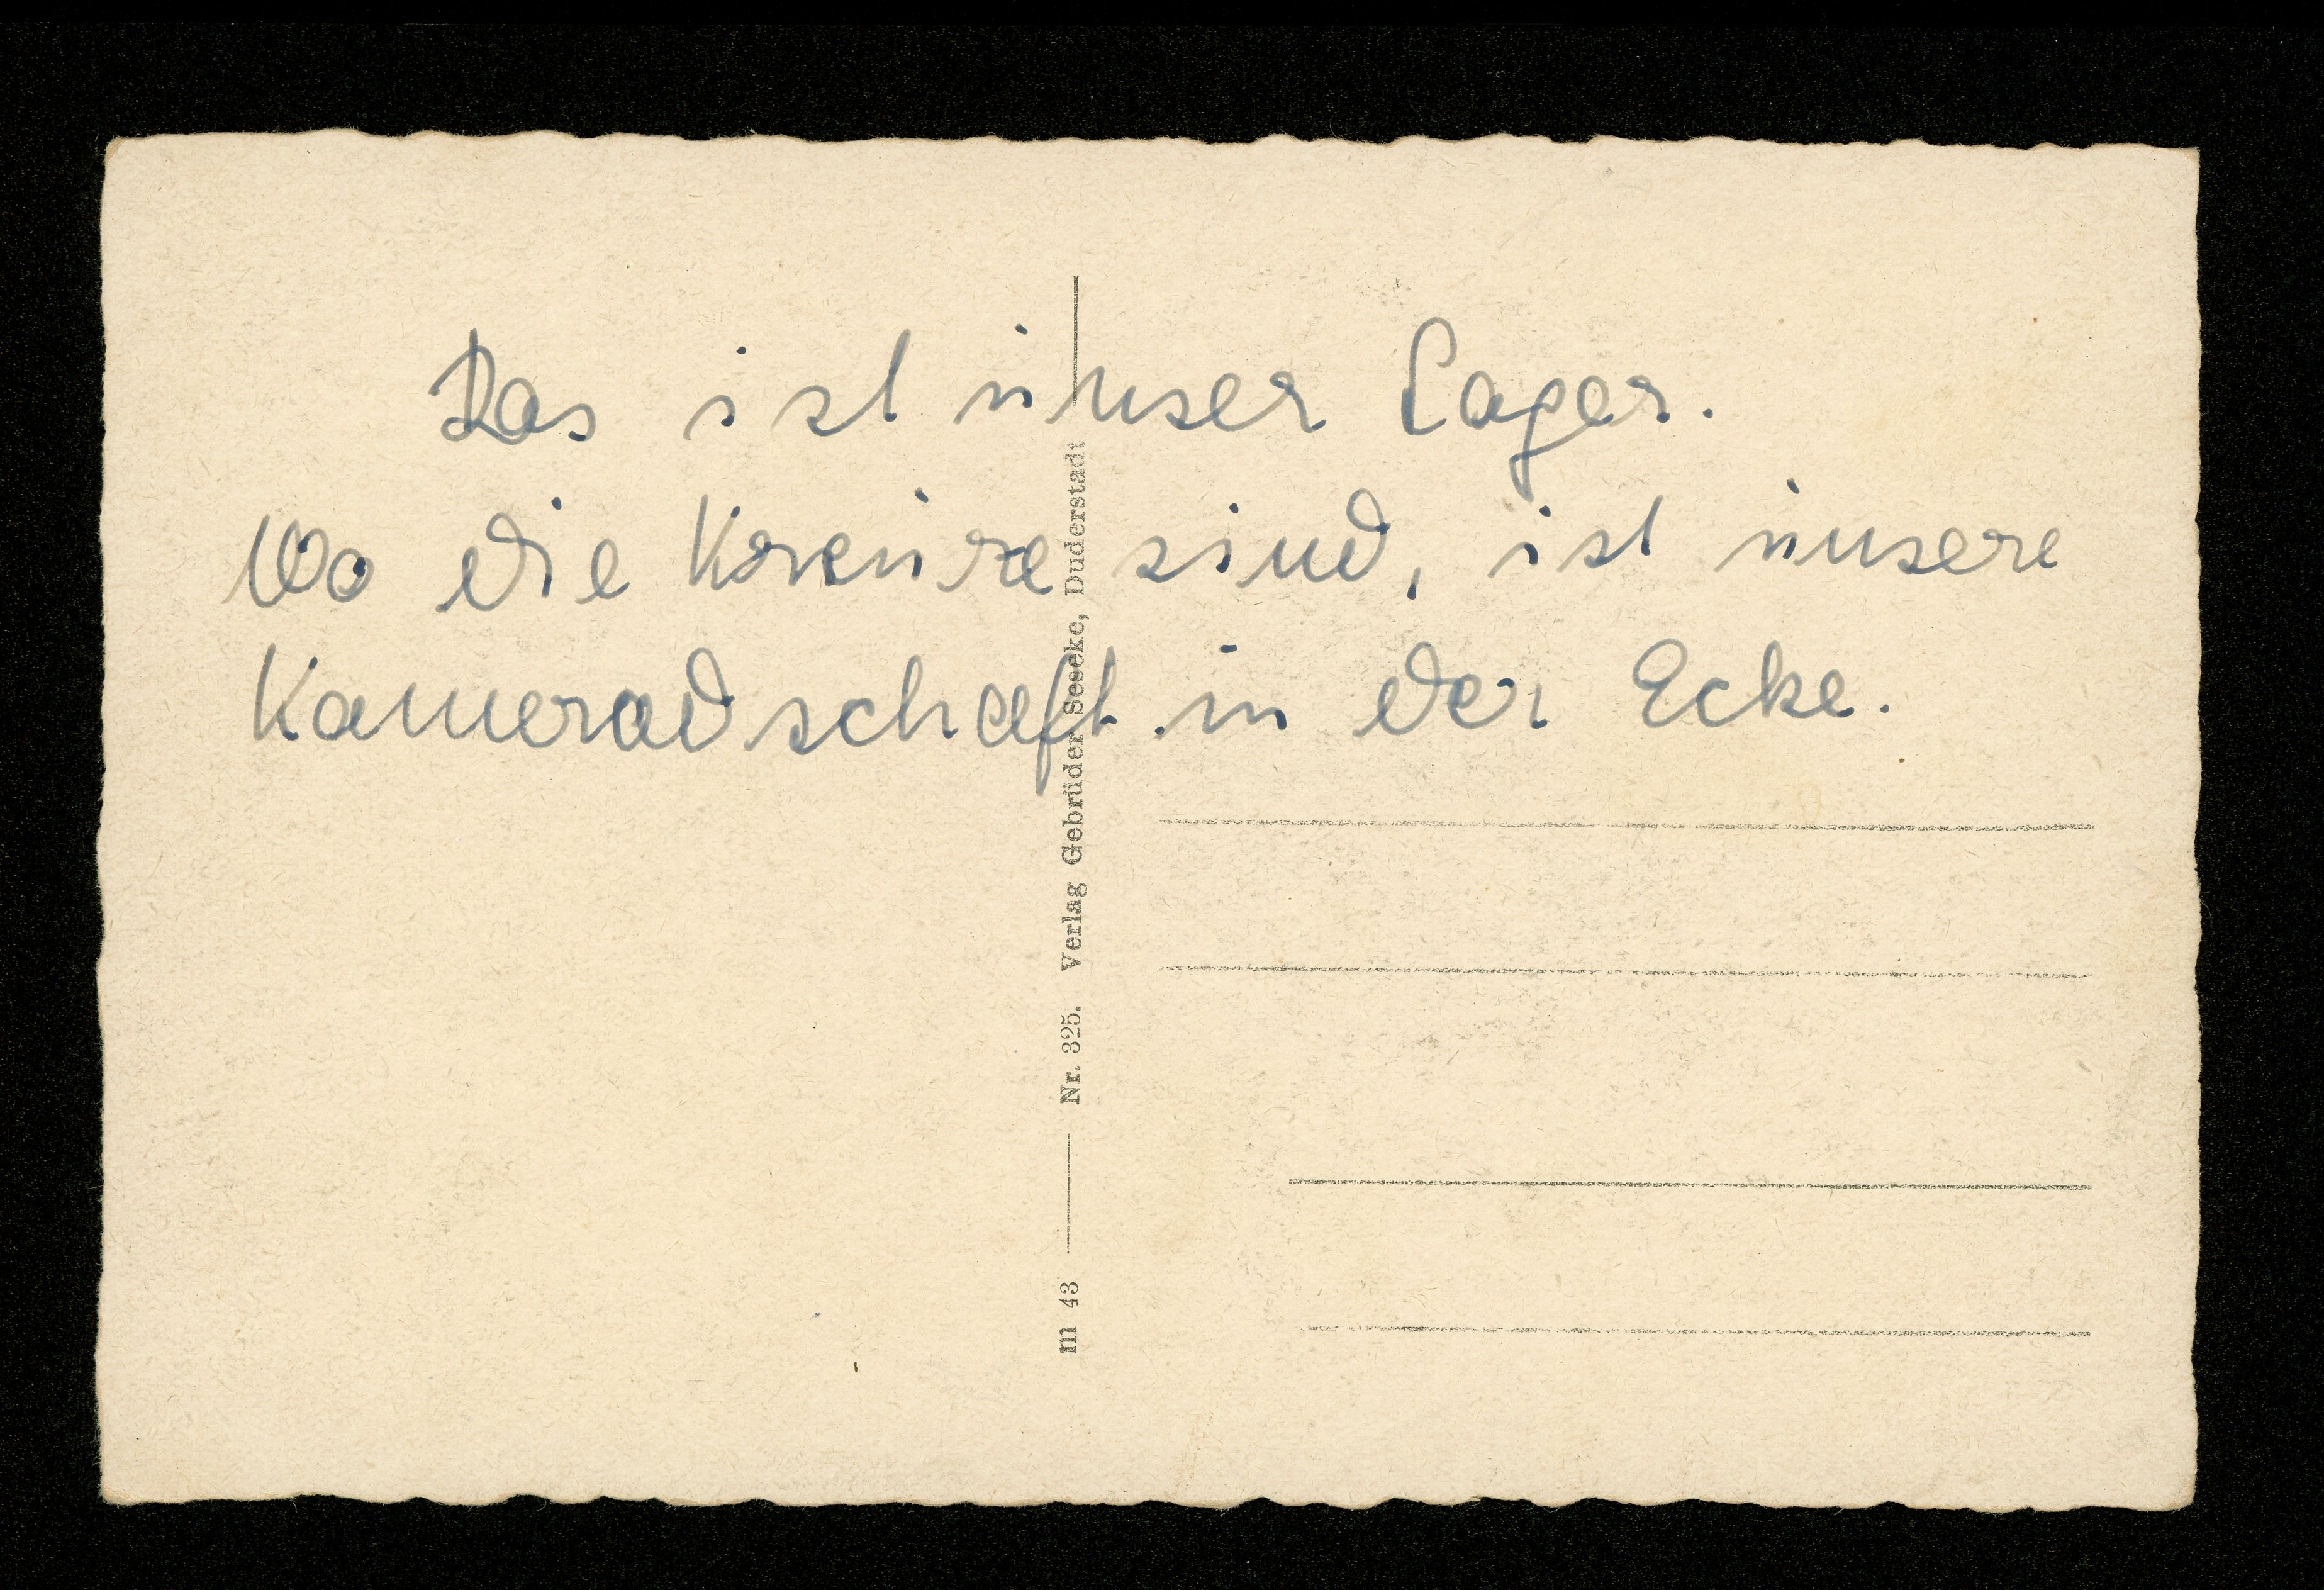 Das ist unser Lager.
Wo die Kreuze sind, ist unsere
Kameradschaft in der Ecke.
m 43 Nr. 325. Verlag Gebrüder Seseke, Duderstadt